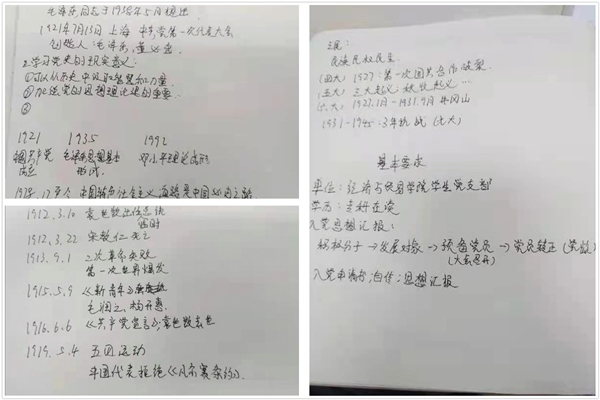 毛泽东同志于1938年5月提出
1921年7月13日 上海 中共第一次代表大会
创始人:毛泽东,董必武
2.学习党史的现实意义:
①可以从历史中汲取智慧和力量
②加强党的思想理论建设的重要
③
1921 1935 1992
中国共产党 毛泽东思想基本 邓小平理论成形
成立 形成
中国特色社会主义
1912.3.10 袁世凯出任总统
临时
1912.3.22 宋教仁死
1913.9.1 二次革命失败
第一次世界爆发
1915.5.9 《新青年》
毛润之、杨开慧
1916.6.6 《共产党宣言》;袁世凯去世
1919.5.4 五四运动
中国代表拒绝《凡尔赛条约》.
三民:
民族民权民生
(四大) 1927:第一次国共合作破裂
(五大) 三大起义 秋收起义…
(六大) 1927.1月-1931.9月 井冈山
1931-1945:抗战(七大)
基本要求
单位:经济与贸易学院学生党支部
学历:本科在读
入党思想汇报:
积极分子→发展对象→预备党员→党员转正(党龄)
(大会召开)
入党申请书;自传;思想汇报